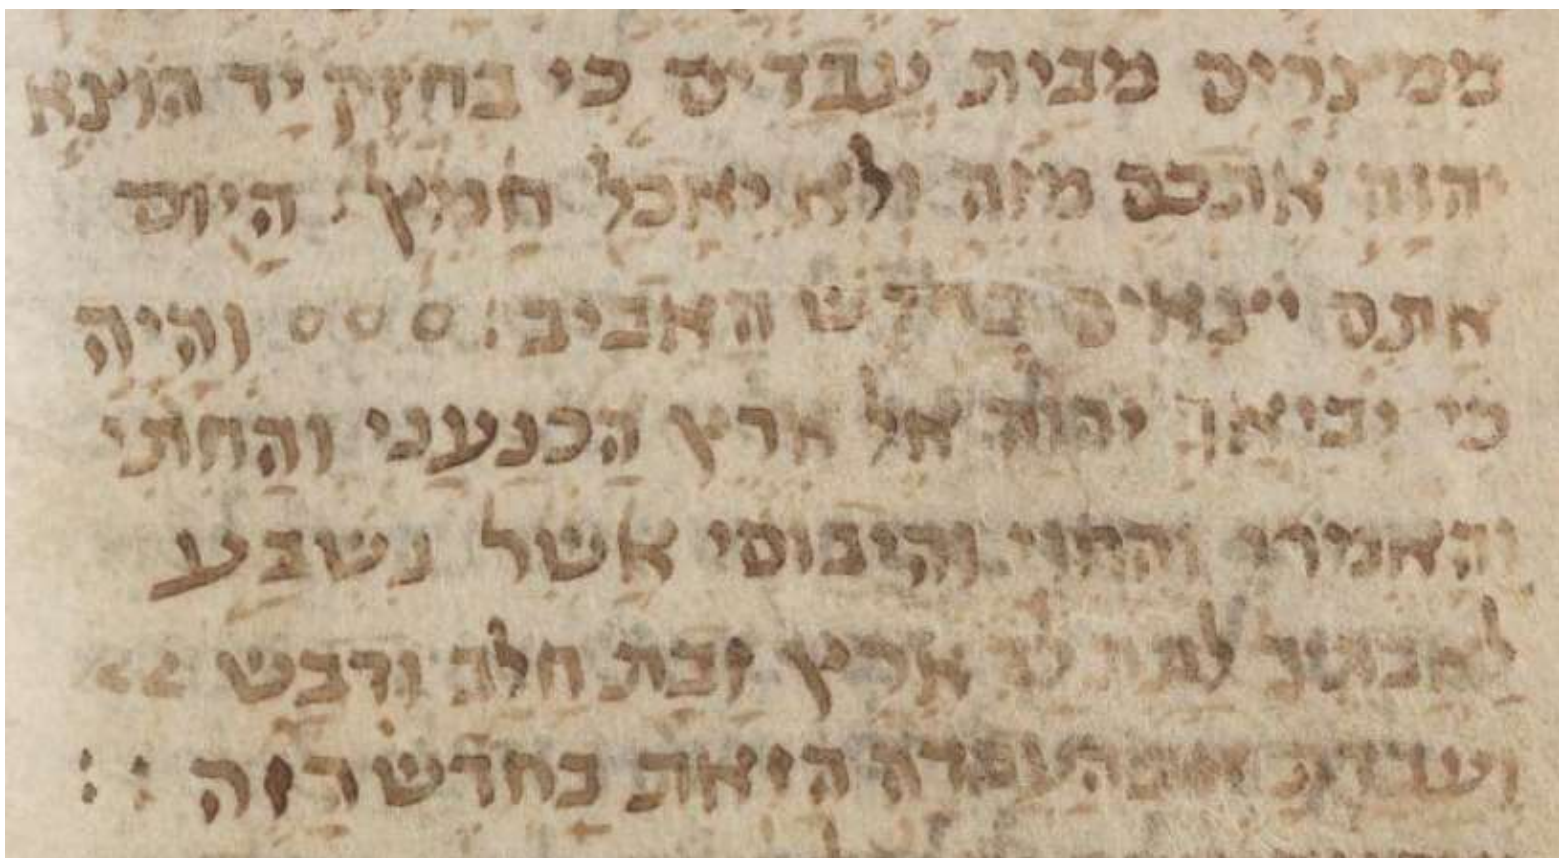 ממצרים מבית עבדים כי בחזק יד הוצא
יהוה אתכם מזה ולא יאכל חמץ׃ היום
אתם יצאים בחדש האביב׃ ססס והיה
כי יביאך יהוה אל ארץ הכנעני והחתי
והאמרי והחוי והיבוסי אשר נשבע
לאבתיך לתת לך ארץ זבת חלב ודבש
ועבדת את העבדה הזאת בחדש הזה׃